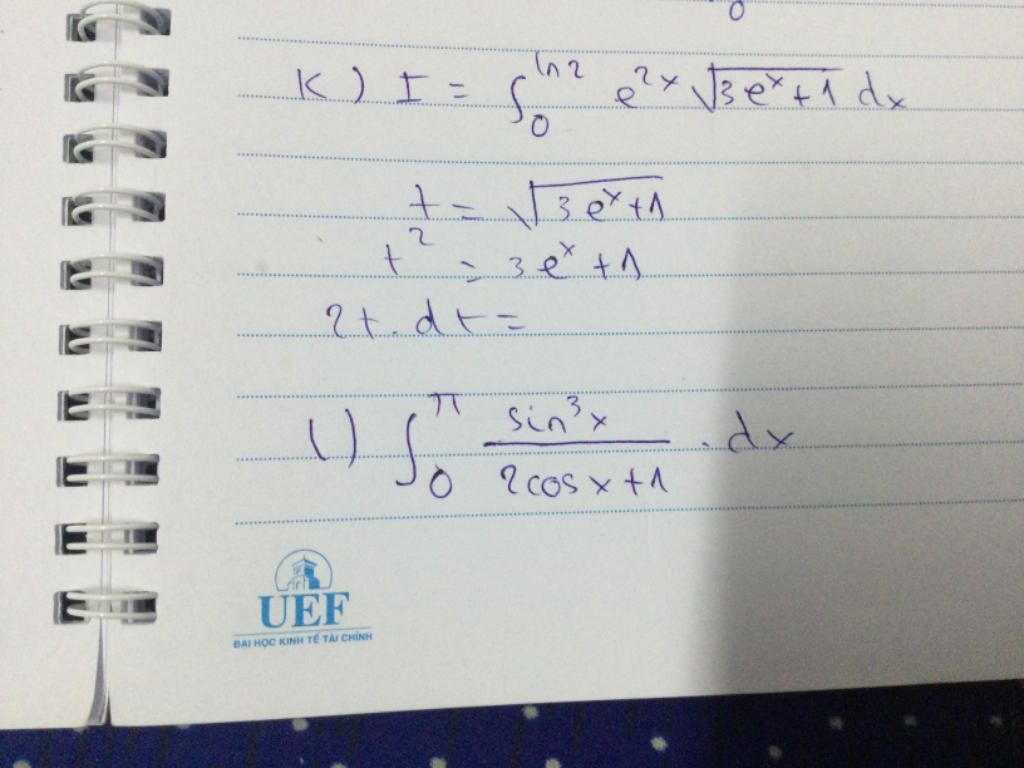 K) I = ∫₀^{ln2} e^{2x} √(3e^x+1) dx
t = √(3e^x+1)
t² = 3e^x+1
2t.dt =
l) ∫₀^π sin³x / (2cosx+1) . dx
UEF
ĐẠI HỌC KINH TẾ TÀI CHÍNH